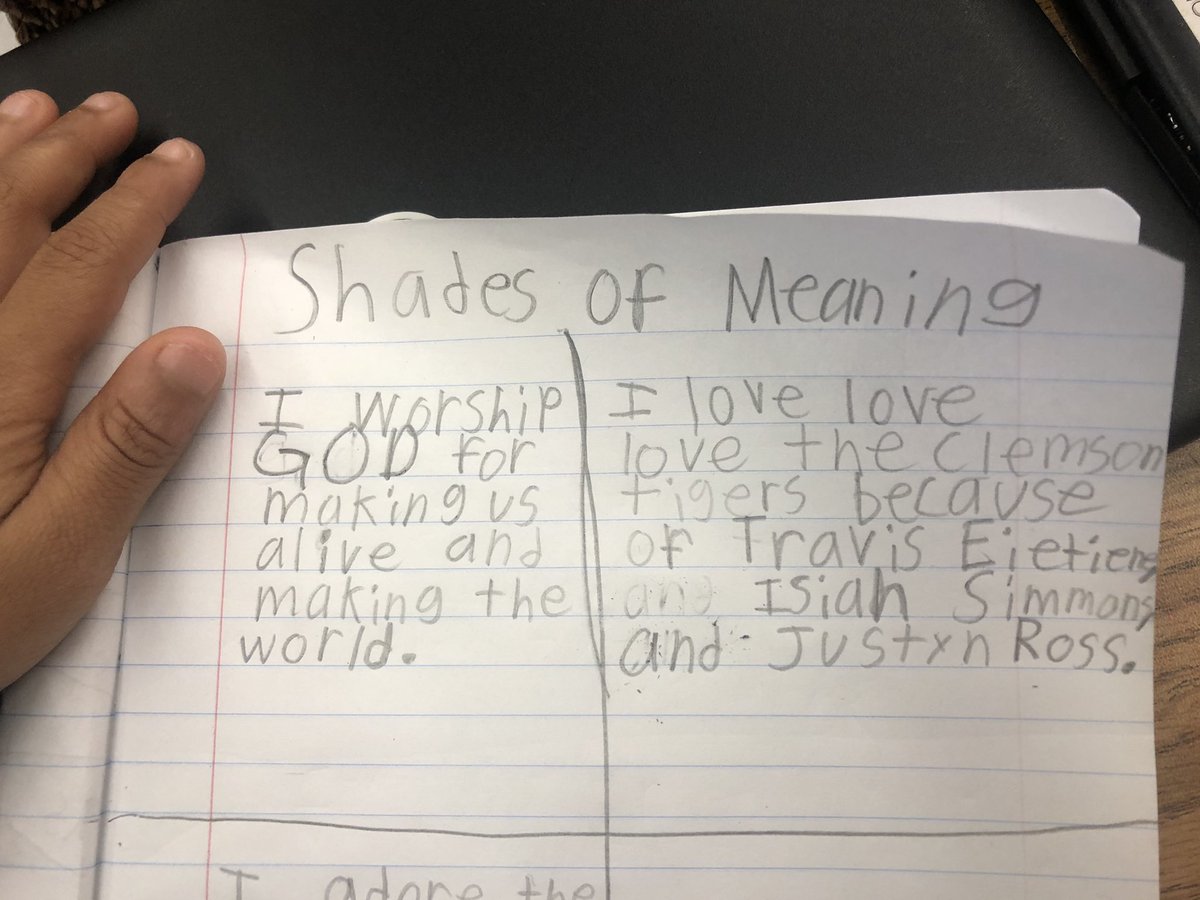 Shades of Meaning
I worship
GOD for
making us
alive and
making the
world.
I love love
love the Clemson
tigers because
of Travis Eietiens
and Isiah Simmons,
and Justxn Ross.
I adore the